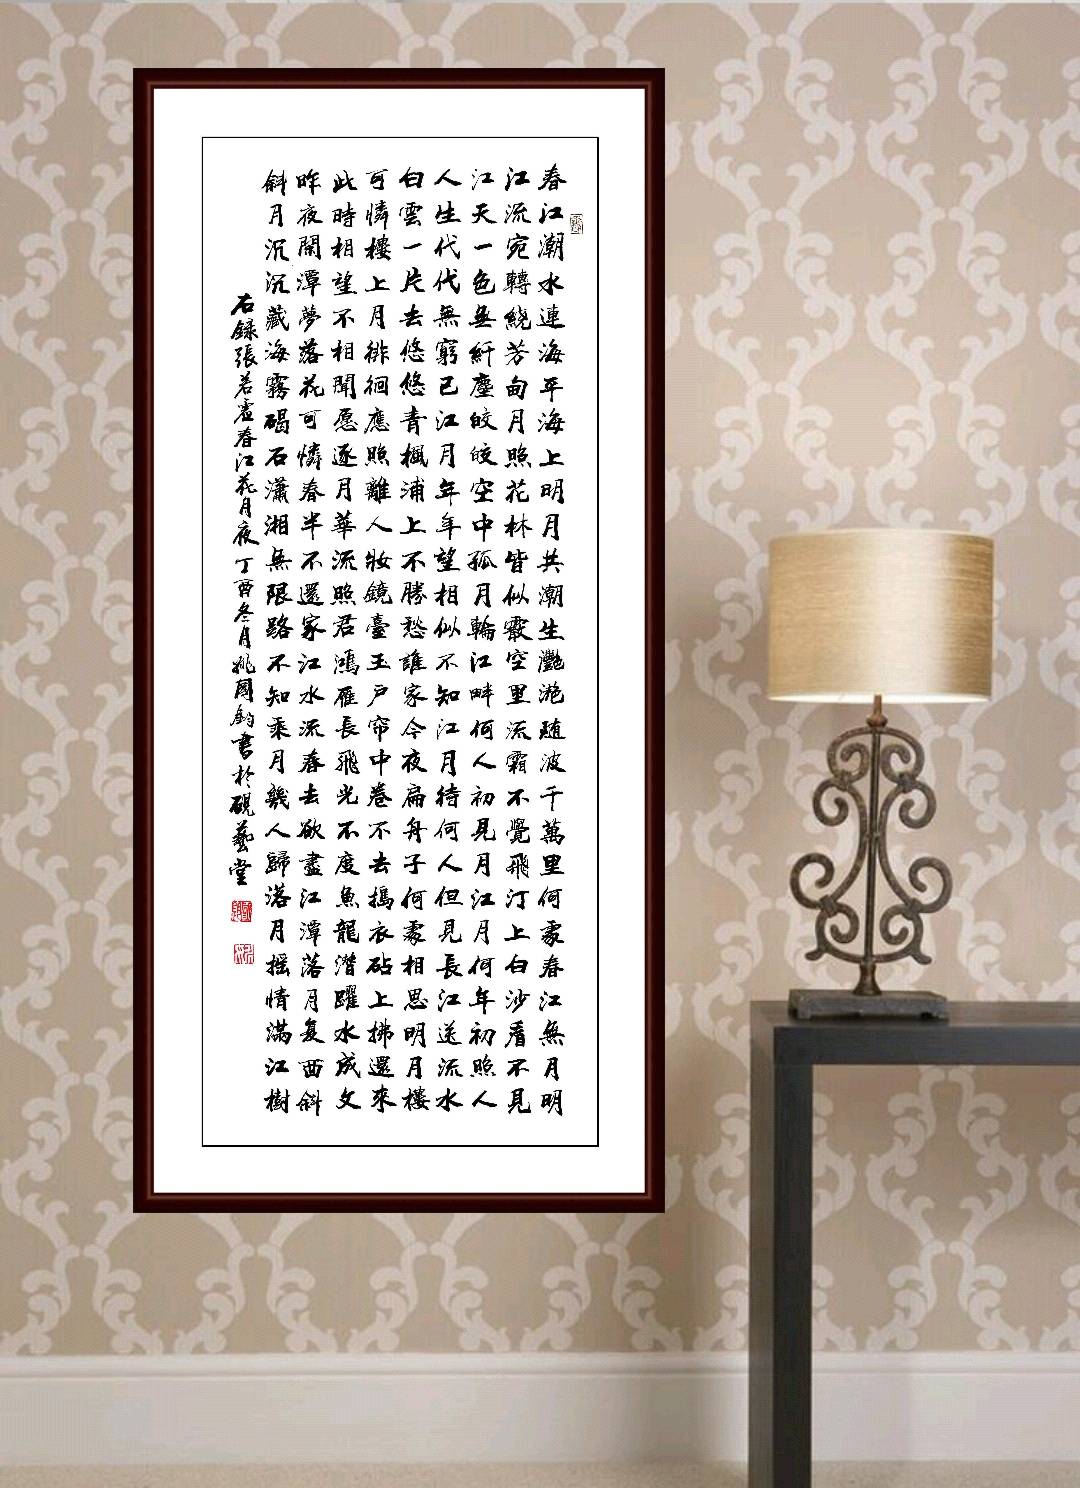 春江潮水連海平海上明月共潮生灩滟隨波千萬里何處春江無月明
江流宛轉繞芳甸月照花林皆似霰空里流霜不覺飛汀上白沙看不見
江天一色無纤塵皎皎空中孤月輪江畔何人初見月江月何年初照人
人生代代無窮已江月年年望相似不知江月待何人但見長江送流水
白雲一片去悠悠青楓浦上不勝愁誰家今夜扁舟子何處相思明月樓
可憐樓上月徘徊應照離人妝鏡臺玉戶帘中卷不去搗衣砧上拂還來
此時相望不相聞愿逐月華流照君鴻雁長飛光不度魚龍潛躍水成文
昨夜閑潭夢落花可憐春半不還家江水流春去欲盡江潭落月复西斜
斜月沉沉藏海霧碣石瀟湘無限路不知乘月幾人歸落月摇情滿江樹
右録張若虛春江花月夜丁酉冬月姚國鈞書於硯藝堂